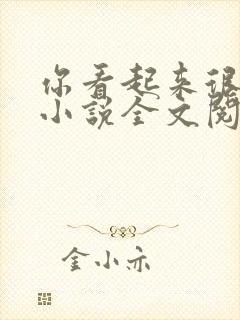 你看起来很
小説全文閱
金小亦